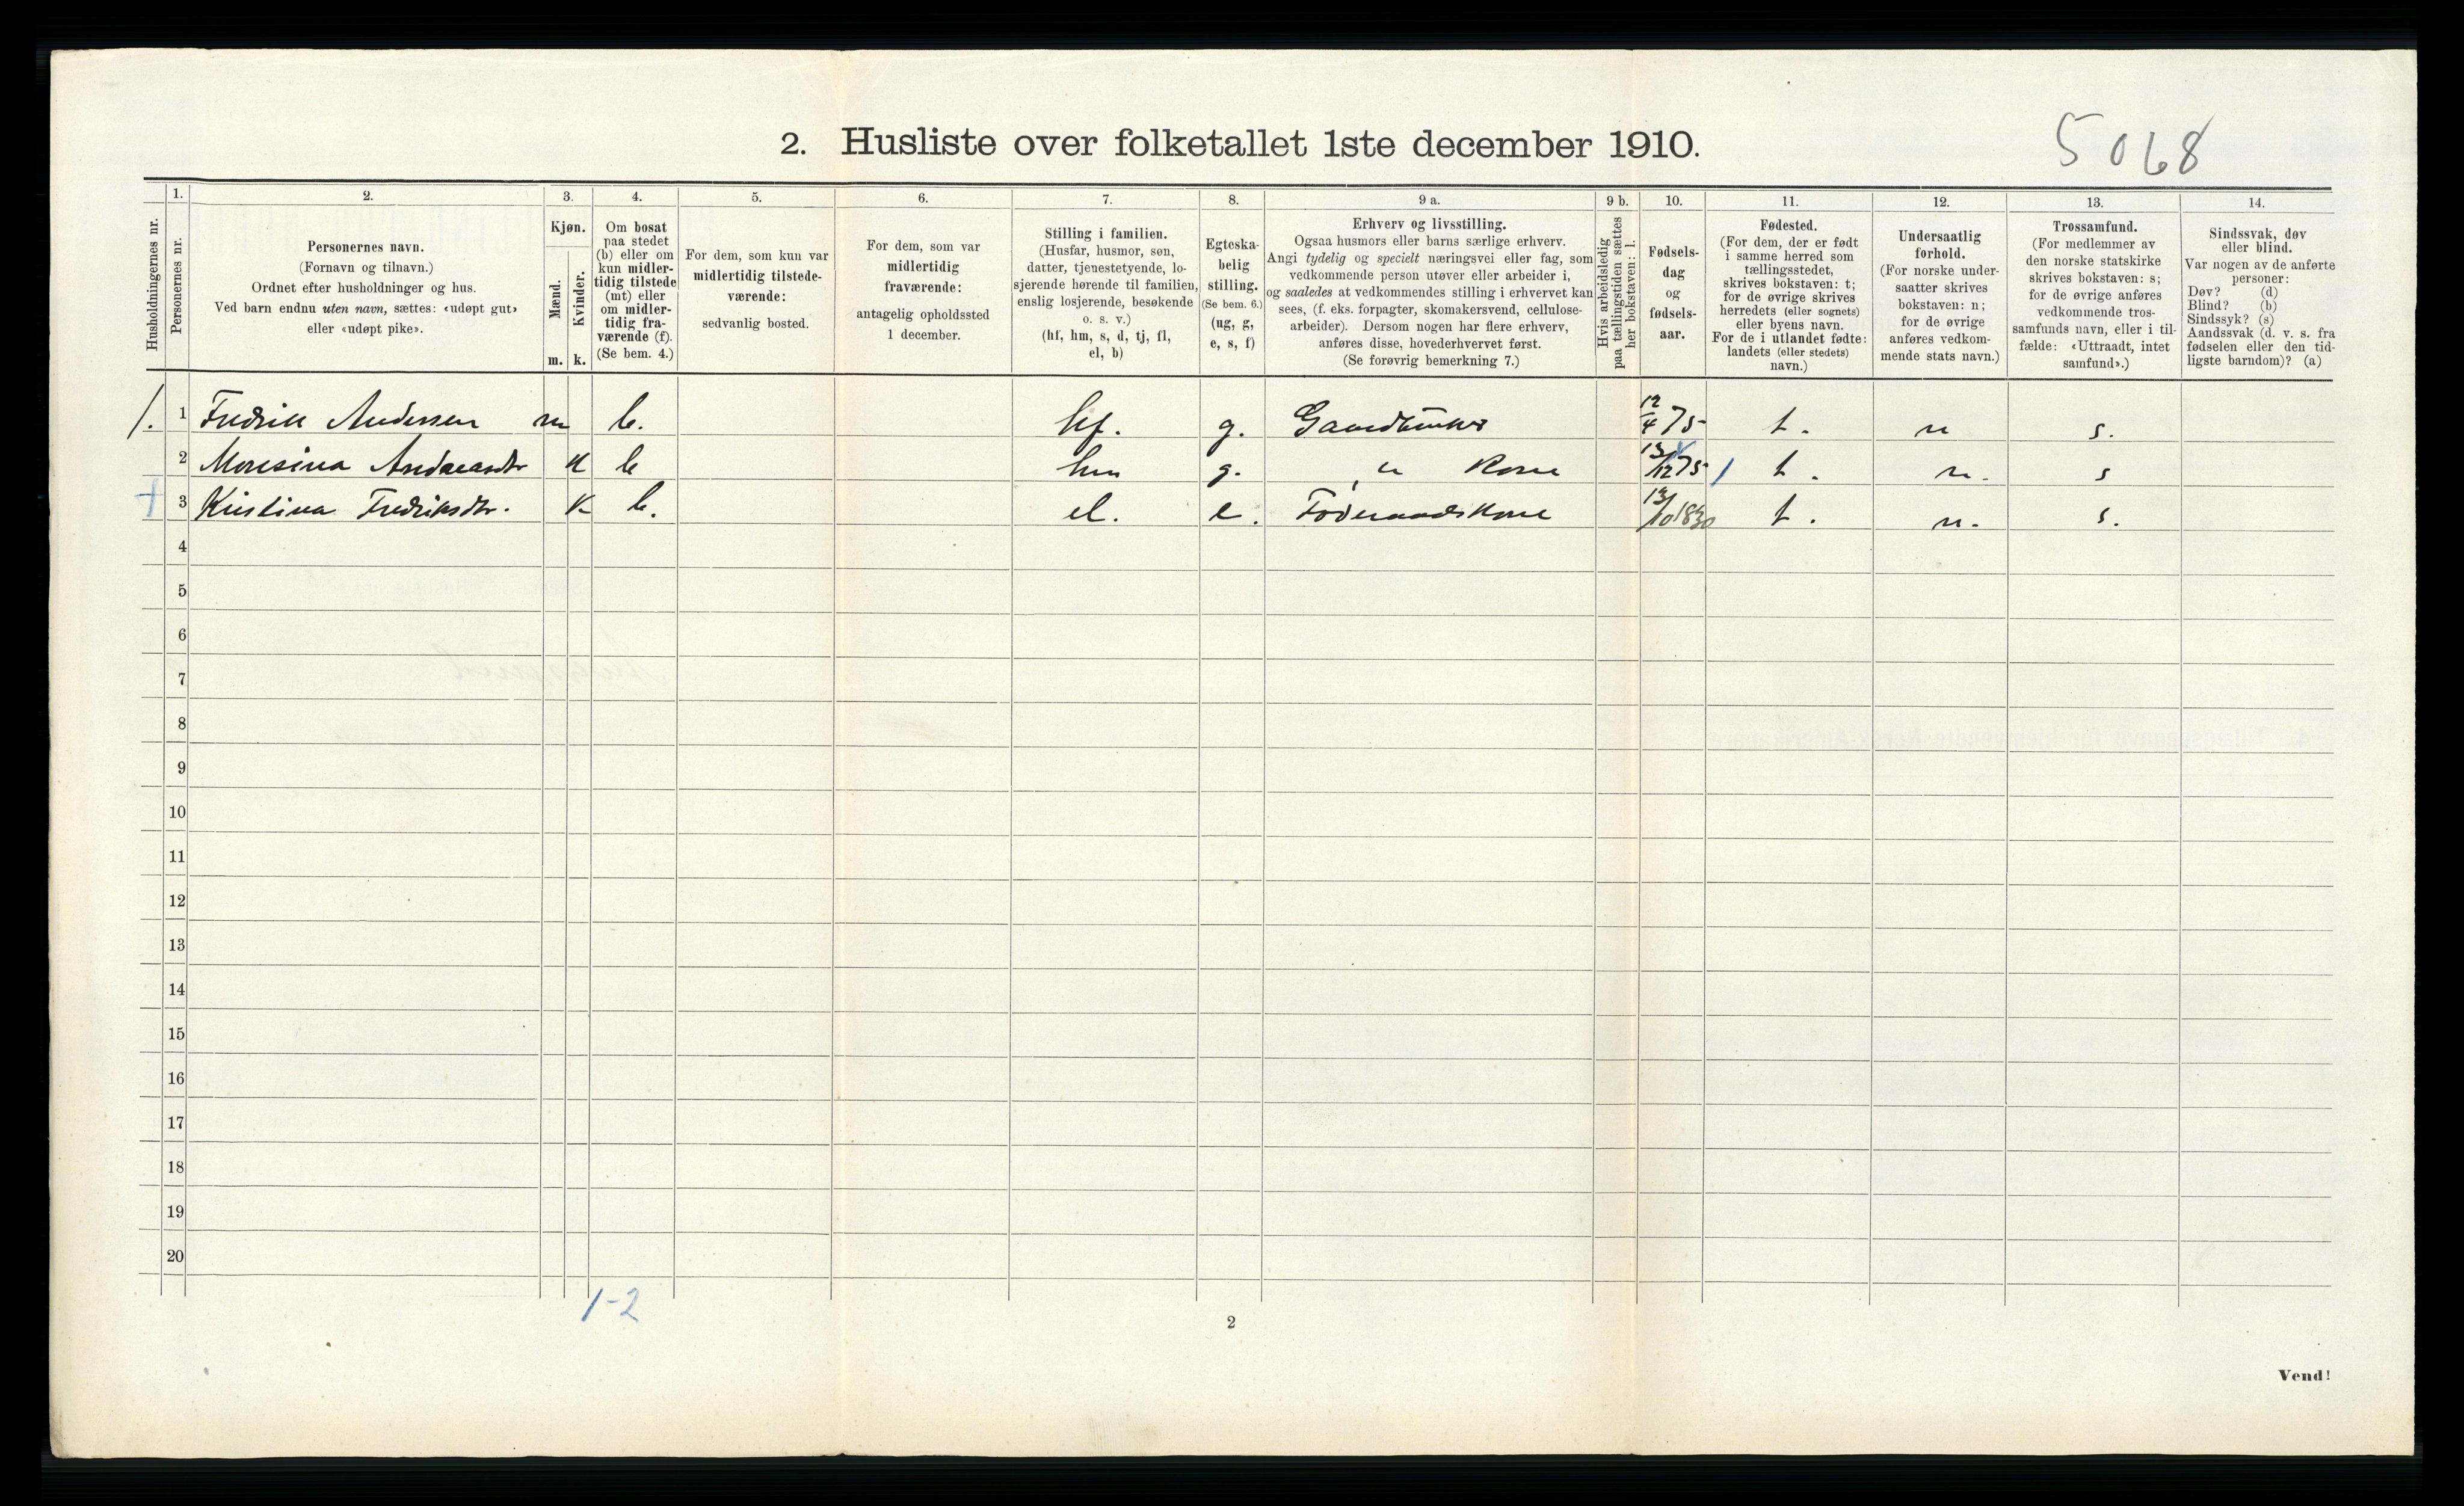 2. Husliste over folketallet 1ste december 1910.
5068
Husholdningernes nr.
1.
Personernes nr.
2.
Personernes navn.
(Fornavn og tilnavn.)
Ordnet efter husholdninger og hus.
Ved barn endnu uten navn, sættes: «udøpt gut»
eller «udøpt pike».
3.
Kjøn.
Mænd.
Kvinder.
m. k.
4.
Om bosat
paa stedet
(b) eller om
kun midler-
tidig tilstede
(mt) eller
om midler-
tidig fra-
værende (f).
(Se bem. 4.)
5.
For dem, som kun var
midlertidig tilstede-
værende:
sedvanlig bosted.
6.
For dem, som var
midlertidig
fraværende:
antagelig opholdssted
1 december.
7.
Stilling i familien.
(Husfar, husmor, søn,
datter, tjenestetyende, lo-
sjerende hørende til familien,
enslig losjerende, besøkende
o. s. v.)
(hf, hm, s, d, tj, fl,
el, b)
8.
Egteska-
belig
stilling.
(Se bem. 6.)
(ug, g,
e, s, f)
9 a.
Erhverv og livsstilling.
Ogsaa husmors eller barns særlige erhverv.
Angi tydelig og specielt næringsvei eller fag, som
vedkommende person utøver eller arbeider i,
og saaledes at vedkommendes stilling i erhvervet kan
sees, (f. eks. forpagter, skomakersvend, cellulose-
arbeider). Dersom nogen har flere erhverv,
anføres disse, hovederhvervet først.
(Se forøvrig bemerkning 7.)
9 b.
Hvis arbeidsledig
paa tællingstiden sættes
her bokstaven: l.
10.
Fødsels-
dag
og
fødsels-
aar.
11.
Fødested.
(For dem, der er født
i samme herred som
tællingsstedet,
skrives bokstaven: t;
for de øvrige skrives
herredets (eller sognets)
eller byens navn.
For de i utlandet fødte:
landets (eller stedets)
navn.)
12.
Undersaatlig
forhold.
(For norske under-
saatter skrives
bokstaven: n;
for de øvrige
anføres vedkom-
mende stats navn.)
13.
Trossamfund.
(For medlemmer av
den norske statskirke
skrives bokstaven: s;
for de øvrige anføres
vedkommende tros-
samfunds navn, eller i til-
fælde: «Uttraadt, intet
samfund».)
14.
Sindssvak, døv
eller blind.
Var nogen av de anførte
personer:
Døv? (d)
Blind? (b)
Sindssyk? (s)
Aandssvak (d. v. s. fra
fødselen eller den tid-
ligste barndom)? (a)
1. 1 Fredrik Andersen m b. hf. g. Gaardbruker 12/4 75 t. n s.
2 k b hm g. " Kone 13/12 75 t. n. s
3 Kristina Fredriksdtr. k b. el. e. Føderaadskone 13/10 1830 t. n. s.
4
5
6
7
8
9
10
11
12
13
14
15
16
17
18
19
20
1-2
2
Vend!